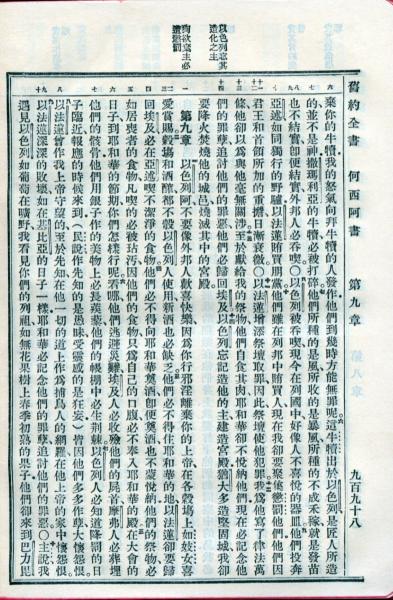 舊約全書 何西阿書 第九章 九百九十八
以色列忘其
造化之主
棄你的牛犢我的怒氣向拜牛犢的人發作他們到幾時方能無罪呢這牛犢出於以色列是匠人所造
的並不是神撒瑪利亞的牛犢必被打碎他們所種的是風所收的是暴風所種的不成禾稼就是發苗
也不結實卽便結實外邦人必吞喫○以色列被吞喫現今在列國中好像人不喜悅的器皿他們投奔
亞述如同獨行的野驢以法蓮賄買朋黨他們雖在列邦中賄買人現在我卻要聚集懲罰他們他們因
君王和首領所加的重擔日漸衰微○以法蓮增添祭壇取罪因此祭壇使他犯罪我爲他寫了律法萬
條他卻以爲與他毫無關涉至於獻給我的祭物他們自食其肉耶和華卻不悅納他們現在必記念他
們的罪孽追討他們的罪惡他們必歸回埃及以色列忘記造他的主建造宮殿猶大多造堅固城我卻
要降火焚燒他的城邑燒滅其中的宮殿
必
遭懲罰
第九章 以色列阿不要像外邦人歡喜快樂因爲你行邪淫離棄你的上帝在各穀場上如妓女喜
愛賞賜穀場和酒醡都不彀以色列人使用新酒也必缺乏他們必不得住耶和華的地以法蓮卻要歸
回埃及必在亞述喫不潔淨的食物他們必不得向耶和華奠酒卽便奠酒也不蒙悅納他們的祭物必
如居喪者的食物凡喫的必被玷汚因他們的食物只爲自己的口腹必不奉入耶和華的殿在大會的
日子到耶和華的節期你們怎樣行呢看哪他們逃避災難埃及人必收殮他們的屍首摩弗人必葬埋
他們的骸骨他們用銀子作的美物上必長蒺藜他們的帳棚中必生荆棘以色列人必知道降罰的日
子臨近報應的時候來到(民說作先知的是愚昧受靈感的是狂妄)皆因他們多多作孽大懷怨恨
以法蓮曾作我上帝守望的至於先知在他一切的道上作爲捕鳥人的網羅在他上帝的家中懷怨恨
以法蓮深深的敗壞如在基比亞的日子一樣耶和華必記念他們的罪孽追討他們的罪惡○主說我
遇見以色列如葡萄在曠野我看見你們的列祖如無花果樹上春季初熟的果子他們卻來到巴力毘